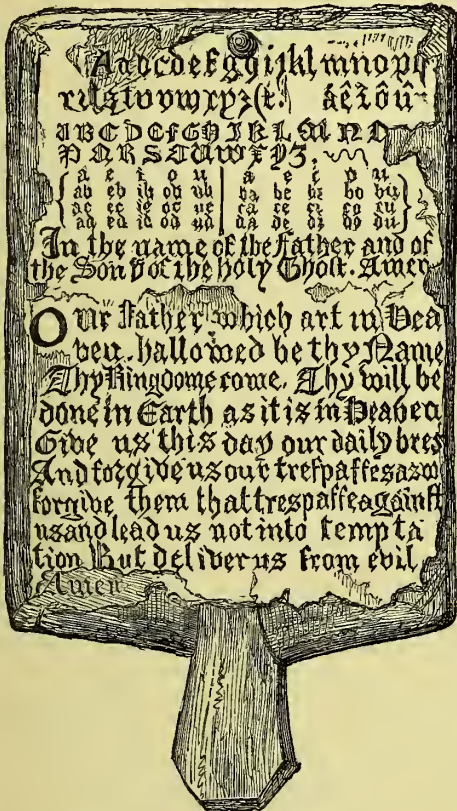 Aabcdefghijklmnopq
rſstuvwxyz&. áêîôû
ABCDEFGHIJKLMNO
PQRSTUVWXYZ.
a e i o u | a e i o u
ab eb ib ob ub | ba be bi bo bu
ac ec ic oc uc | ca ce ci co cu
ad ed id od ud | da de di do du
In the name of the Father and of
the Son & of the Holy Ghost. Amen
Our Father which art in Hea
ven. hallowed be thy Name
Thy Kingdome come. Thy will be
done in Earth as it is in Heaven
Give us this day our daily brea
And forgive us our treſpaſſes as w
forgive them that treſpaſſe againſt
us and lead us not into tempta
tion But deliver us from evil
Amen